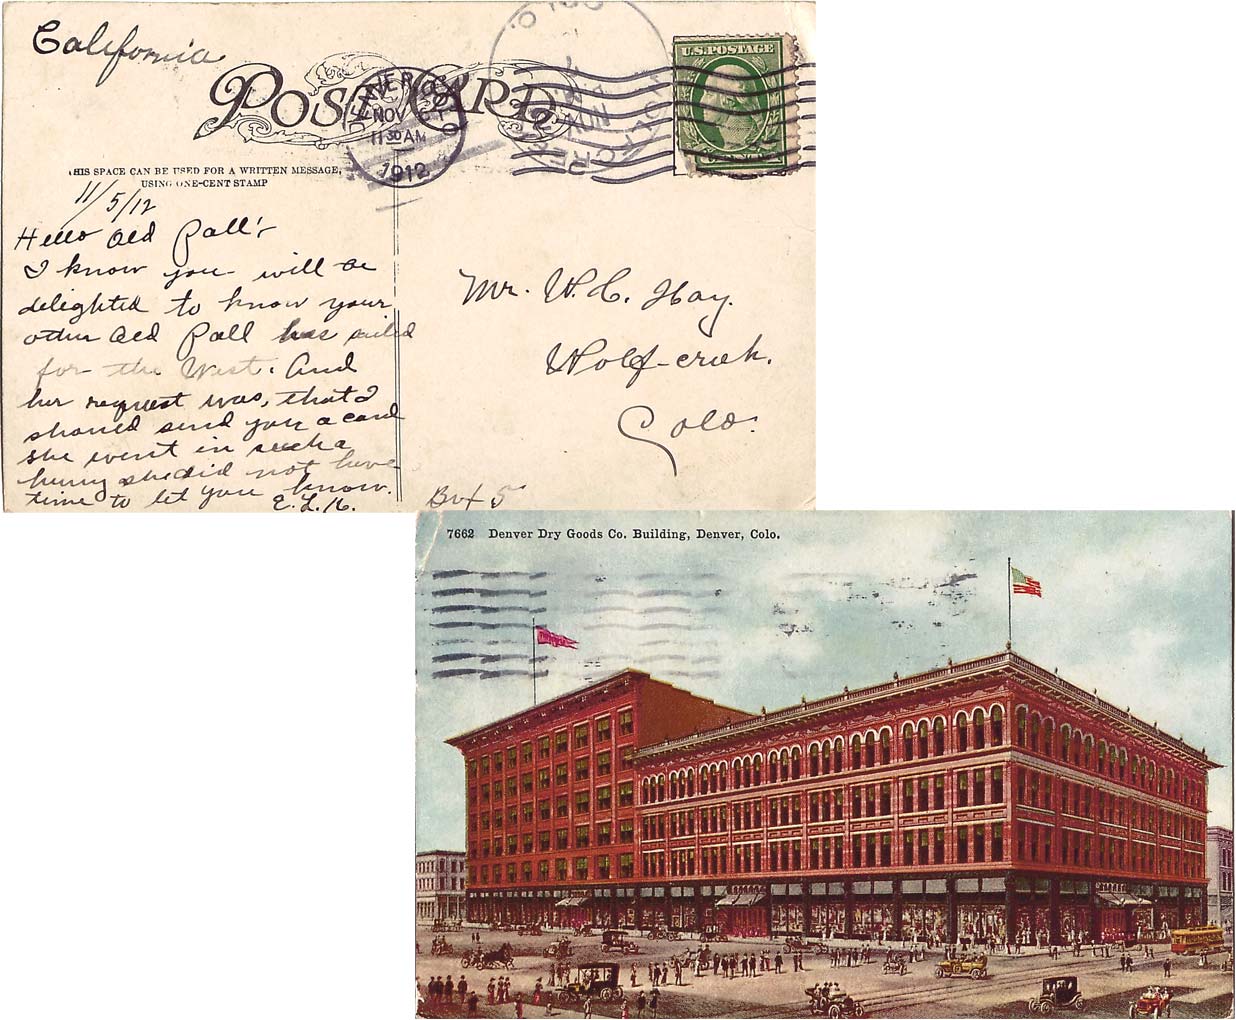 California
POST CARD
DENVER COLO
NOV 6
11 30 AM
1912
U.S. POSTAGE
THIS SPACE CAN BE USED FOR A WRITTEN MESSAGE,
USING ONE-CENT STAMP
11/5/12
Hello Old Pall's
I know you will be
delighted to know your
other Old Pall has sailed
for the West. And
her request was, that I
should send you a card
she went in such a
hurry she did not have
time to let you know.
E.L.K.
Mr. W. C. Hay.
Wolf-creek.
Colo.
Box 5
7662 Denver Dry Goods Co. Building, Denver, Colo.